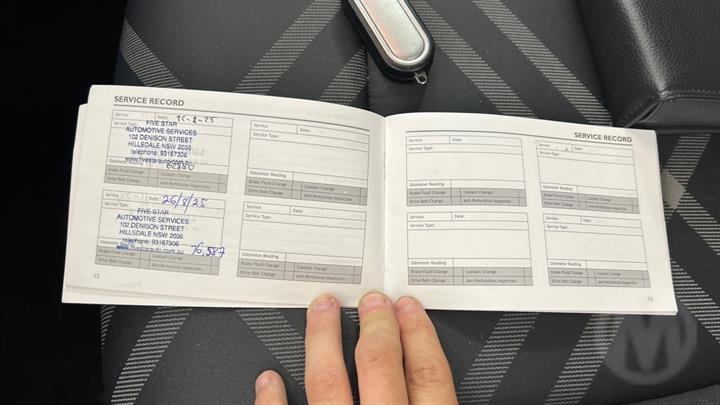 SERVICE RECORD
Service Date:
Service Type:
FIVE STAR
AUTOMOTIVE SERVICES
102 DENISON STREET
HILLSDALE NSW 2036
telephone: 93167306
www.fivestarauto.com.au
Odometer Reading
Brake Fluid Change Coolant Change
Drive Belt Change Anti-Perforation Inspection
Service Date: 26/8/25
Service Type:
FIVE STAR
AUTOMOTIVE SERVICES
102 DENISON STREET
HILLSDALE NSW 2036
telephone: 93167306
www.fivestarauto.com.au 76,587
Brake Fluid Change Coolant Change
Drive Belt Change Anti-Perforation Inspection
12
Service Date:
Service Type:
Odometer Reading
Brake Fluid Change Coolant Change
Drive Belt Change Anti-Perforation Inspection
Service Date:
Service Type:
Odometer Reading
Brake Fluid Change Coolant Change
Drive Belt Change Anti-Perforation Inspection
SERVICE RECORD
Service Date:
Service Type:
Odometer Reading
Brake Fluid Change Coolant Change
Drive Belt Change Anti-Perforation Inspection
Service Date:
Service Type:
Odometer Reading
Brake Fluid Change Coolant Change
Drive Belt Change Anti-Perforation Inspection
Service Date:
Service Type:
Odometer Reading
Brake Fluid Change Coolant Change
Drive Belt Change Anti-Perforation Inspection
Service Date:
Service Type:
Odometer Reading
Brake Fluid Change Coolant Change
Drive Belt Change Anti-Perforation Inspection
13
M